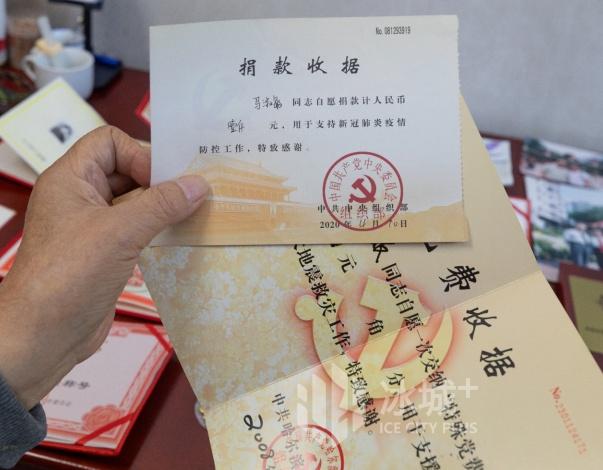 No. 081293919
捐款收据
同志自愿捐款计人民币
壹仟 元，用于支持新冠肺炎疫情
防控工作，特致感谢。
中国共产党中央委员会
组织部
中共中央组织部
2020年
费收据
同志自愿一次交纳特殊党费
元 角 分，用于支援
地震救灾工作，特致感谢。
中共哈尔滨
2008
冰城+
ICE CITY PLUS